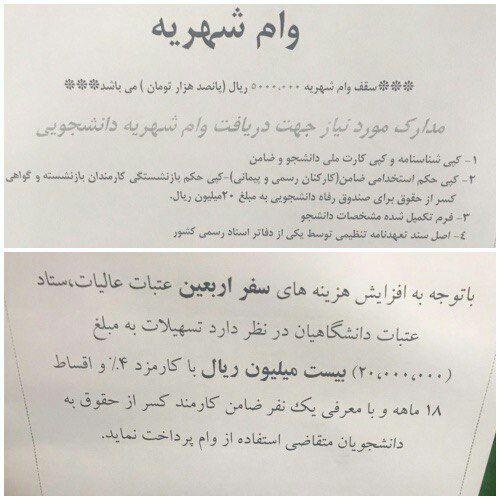 وام شهریه
***سقف وام شهریه ۵۰۰۰.۰۰۰ ریال (پانصد هزار تومان ) می باشد***
مدارک مورد نیاز جهت دریافت وام شهریه دانشجویی
۱- کپی شناسنامه و کپی کارت ملی دانشجو و ضامن
۲- کپی حکم استخدامی ضامن(کارکنان رسمی و پیمانی)-کپی حکم بازنشستگی کارمندان بازنشسته و گواهی
کسر از حقوق برای صندوق رفاه دانشجویی به مبلغ ۲۰میلیون ریال.
۳- فرم تکمیل شده مشخصات دانشجو
۴- اصل سند تعهدنامه تنظیمی توسط یکی از دفاتر اسناد رسمی کشور
باتوجه به افزایش هزینه های سفر اربعین عتبات عالیات،ستاد
عتبات دانشگاهیان در نظر دارد تسهیلات به مبلغ
(۲۰،۰۰۰،۰۰۰) بیست میلیون ریال با کارمزد ۴٪ و اقساط
۱۸ ماهه و با معرفی یک نفر ضامن کارمند کسر از حقوق به
دانشجویان متقاضی استفاده از وام پرداخت نماید.